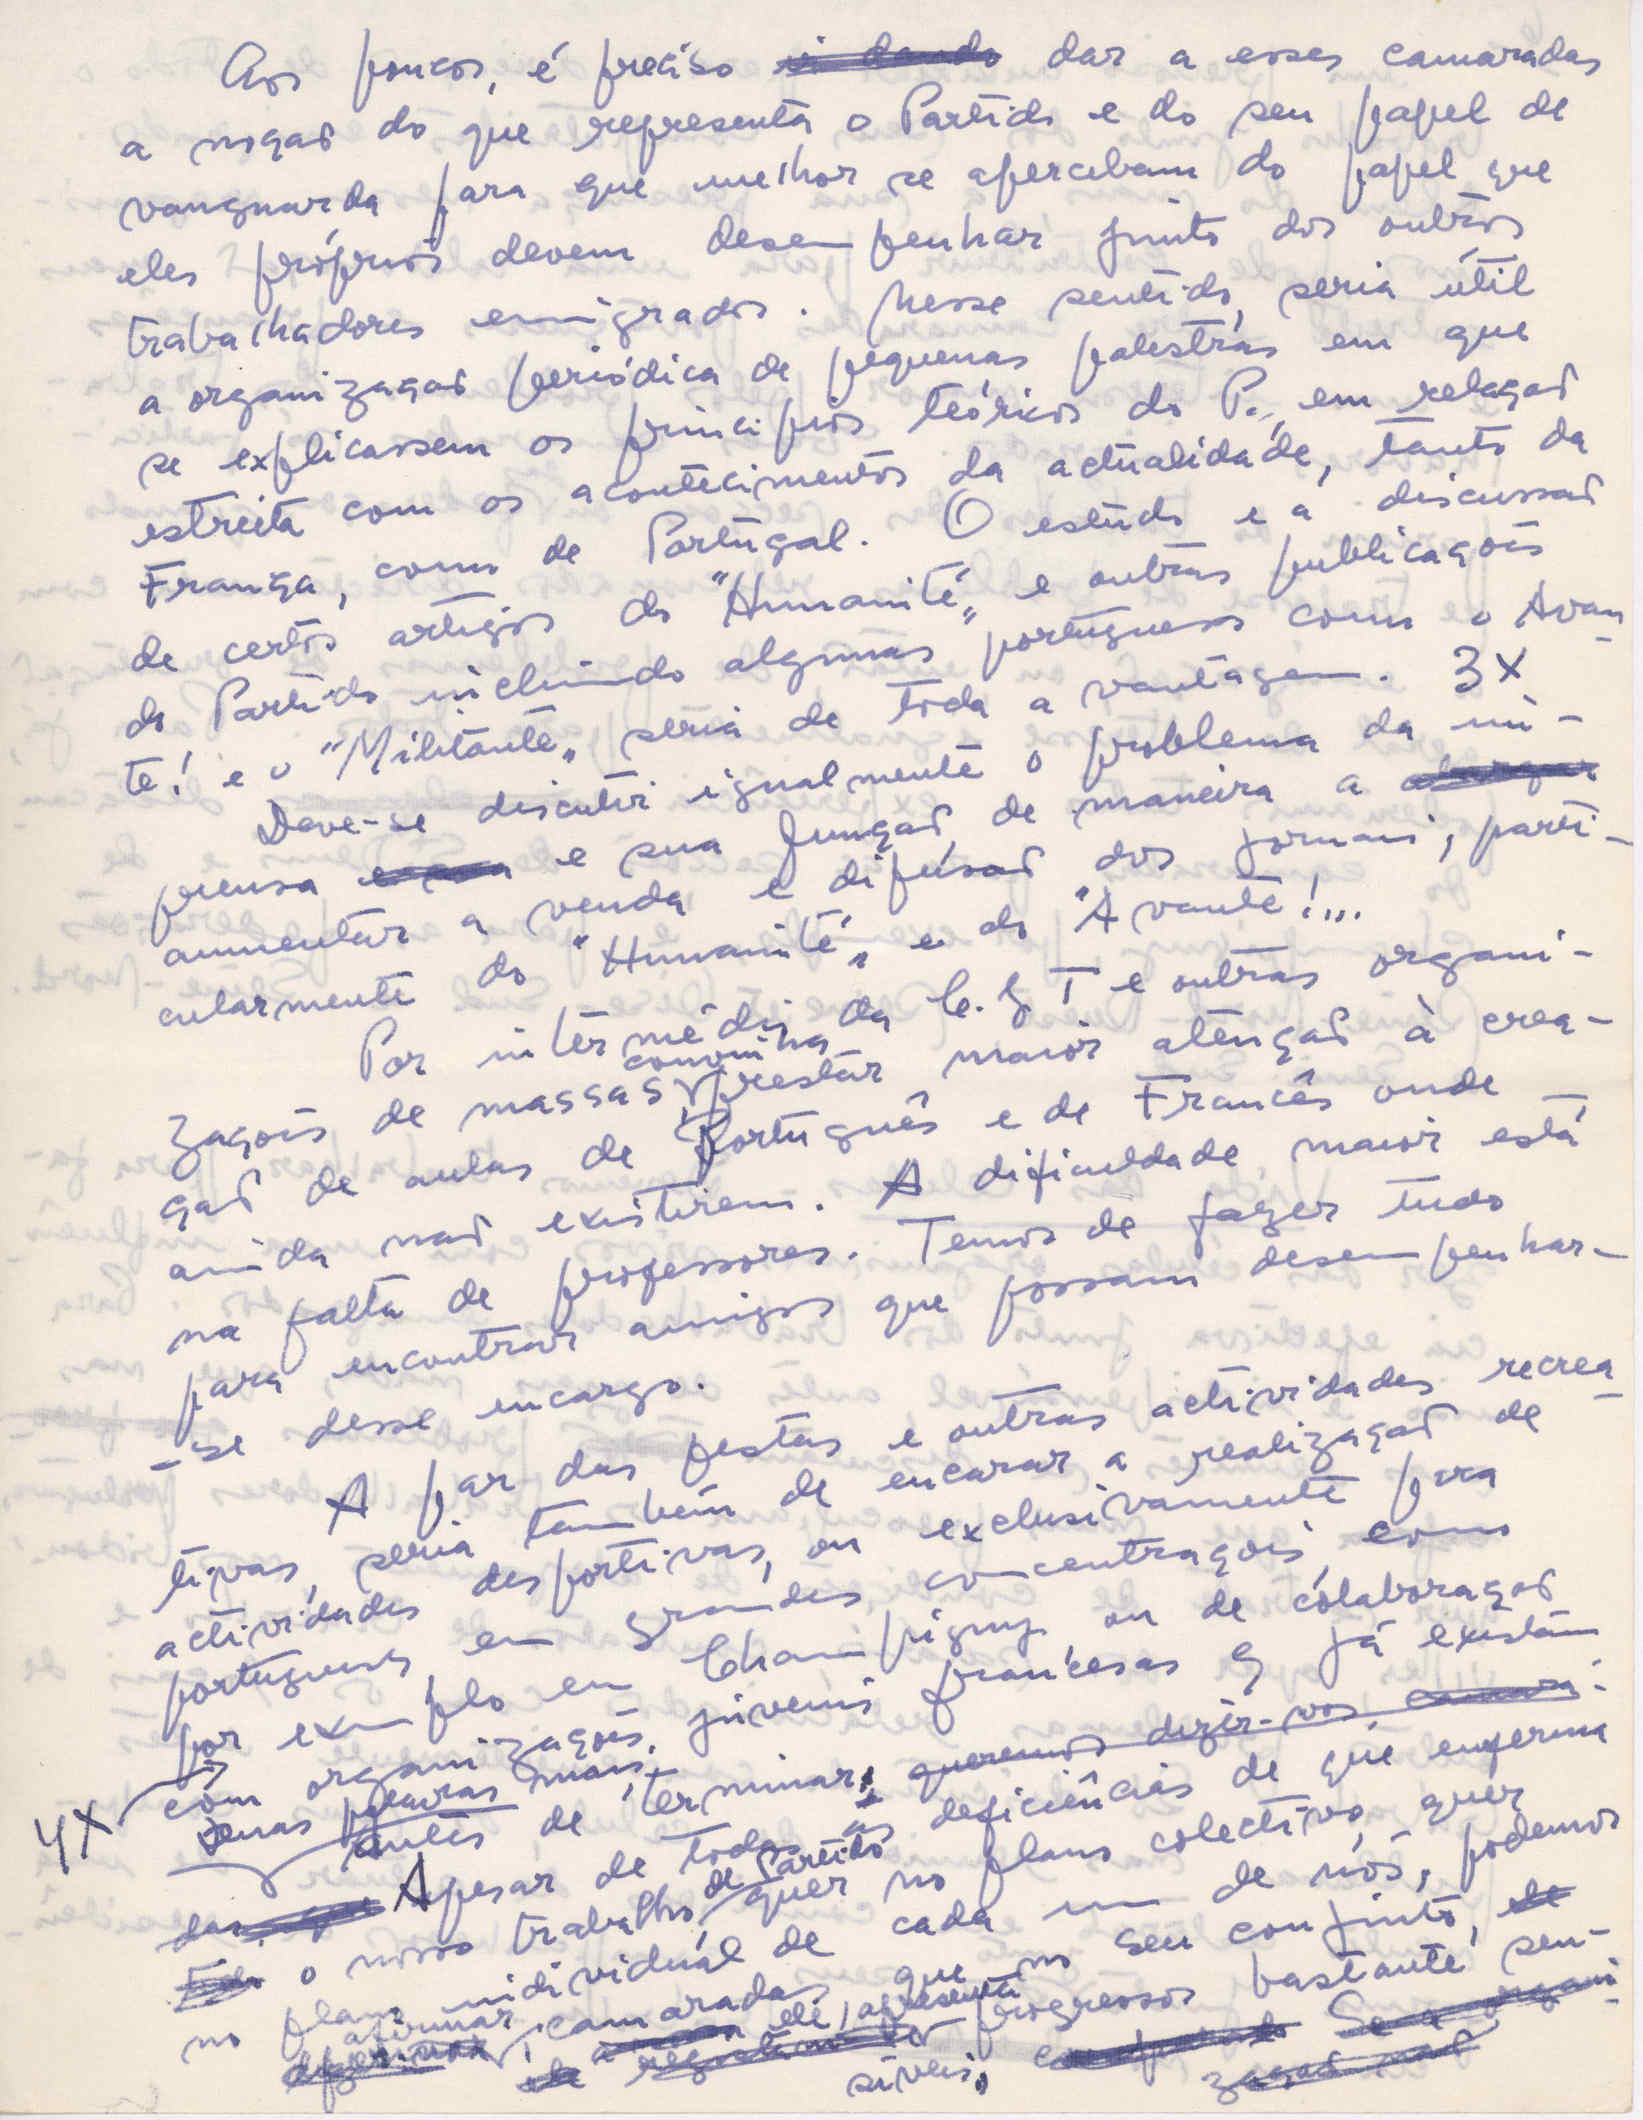 Aos poucos, é preciso dar a esses camaradas
a noção do que representa o Partido e do seu papel de
vanguarda para que melhor se apercebam do papel que
eles próprios devem desempenhar junto dos outros
trabalhadores emigrados. Nesse sentido, seria útil
a organização periódica de pequenas palestras em que
se explicassem os princípios teóricos do P., em relação
estreita com os acontecimentos da actualidade, tanto da
França, como de Portugal. O estudo e a discussão
de certos artigos do "Humanité" e outras publicações
do Partido incluindo algumas portuguesas como o Avan-
te! e o "Militante" seria de toda a vantagem. 3X
Deve-se discutir igualmente o problema da im-
prensa e sua função, de maneira a
aumentar a venda e difusão dos jornais, parti-
cularmente do "Humanité" e do "Avante!"..
Por intermédio da C.G.T e outras organi-
zações de massas convinha prestar maior atenção à crea-
ção de aulas de Português e de Francês onde
ainda não existirem. A dificuldade maior está
na falta de professores. Temos de fazer tudo
para encontrar amigos que possam desempenhar-
-se desse encargo.
A par das festas e outras actividades recrea-
tivas, seria também de encarar a realização de
actividades desportivas, ou exclusivamente para
portugueses, em grandes concentrações, como
por exemplo em Champigny ou de colaboração
com organizações juvenis francesas q já existam
4X Duas palavras mais, antes de terminar: queremos dizer-vos, camara-
das, que Apesar de todas as deficiências de que enferma
o nosso trabalho de Partido, quer no plano colectivo, quer
no plano individual de cada um de nós, podemos
afirmar, camaradas, que no seu conjunto,
ele apresenta progressos bastante sen-
síveis, Se a organi-
zação não